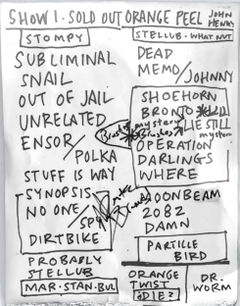 SHOW 1 - SOLD OUT ORANGE PEEL
JOHN HENRY
STOMPY
SUBLIMINAL
SNAIL
OUT OF JAIL
UNRELATED
ENSOR/POLKA
STUFF IS WAY
SYNOPSIS
NO ONE/SPY
DIRTBIKE
PROBABLY
STELLUB
MAR·STAN·BUL
STELLUB - WHAT NUT
DEAD
MEMO/JOHNNY
SHOEHORN
BRONTO
LIE STILL
mystery
Brushes
OPERATION
DARLINGS
WHERE
MOONBEAM
2082
DAMN
PARTICLE
BIRD
ORANGE
TWIST
DR.
WORM